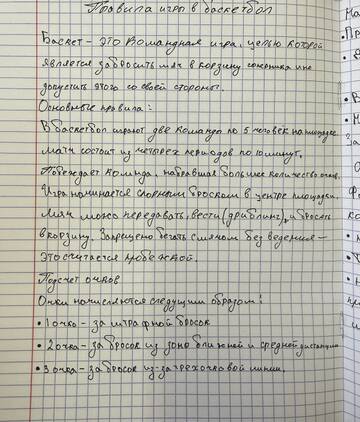 Правила игры в баскетбол
Баскет - это командная игра, целью которой
является забросить мяч в корзину соперника и не
допустить этого со своей стороны.
Основные правила:
В баскетбол играют две команды по 5 человек на площадке.
Матч состоит из четырех периодов по 10 минут.
Побеждает команда, набравшая большее количество очков.
Игра начинается спорным броском в центре площадки.
Мяч можно передавать, вести (дриблинг), и бросать
в корзину. Запрещено бегать с мячом без ведения -
это считается пробежкой.
Подсчет очков
Очки начисляются следущим образом:
• 1 очко - за штрафной бросок
• 2 очка - за бросок из зоны ближней и средней дистанции
• 3 очка - за бросок из-за трехочковой линии.